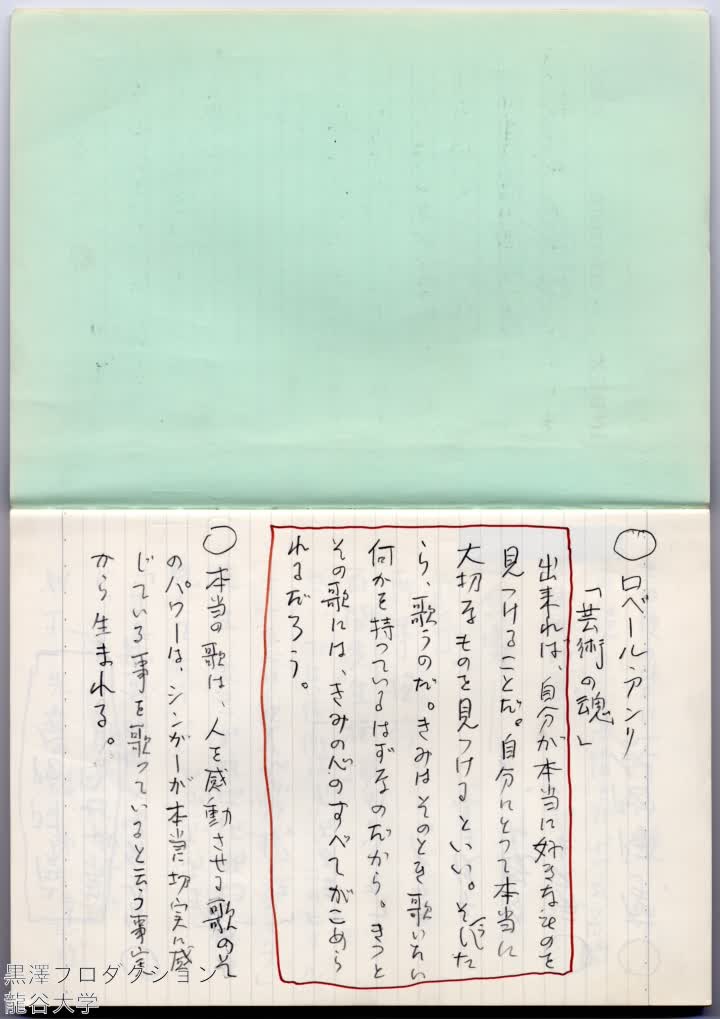 ○ロベール・アンリ
「芸術の魂」
出来れば、自分が本当に好きなものを
見つけることだ。自分にとって本当に
大切なものを見つけるといい。そうした
ら、歌うのだ。きみはそのとき歌いたい
何かを持っているはずなのだから。きっと
その歌には、きみの心のすべてがこめら
れるだろう。
○本当の歌は、人を感動させる歌のそ
のパワーは、シンガーが本当に切実に感
じている事を歌っていると云う事実
から生まれる。
黒澤プロダクション
龍谷大学